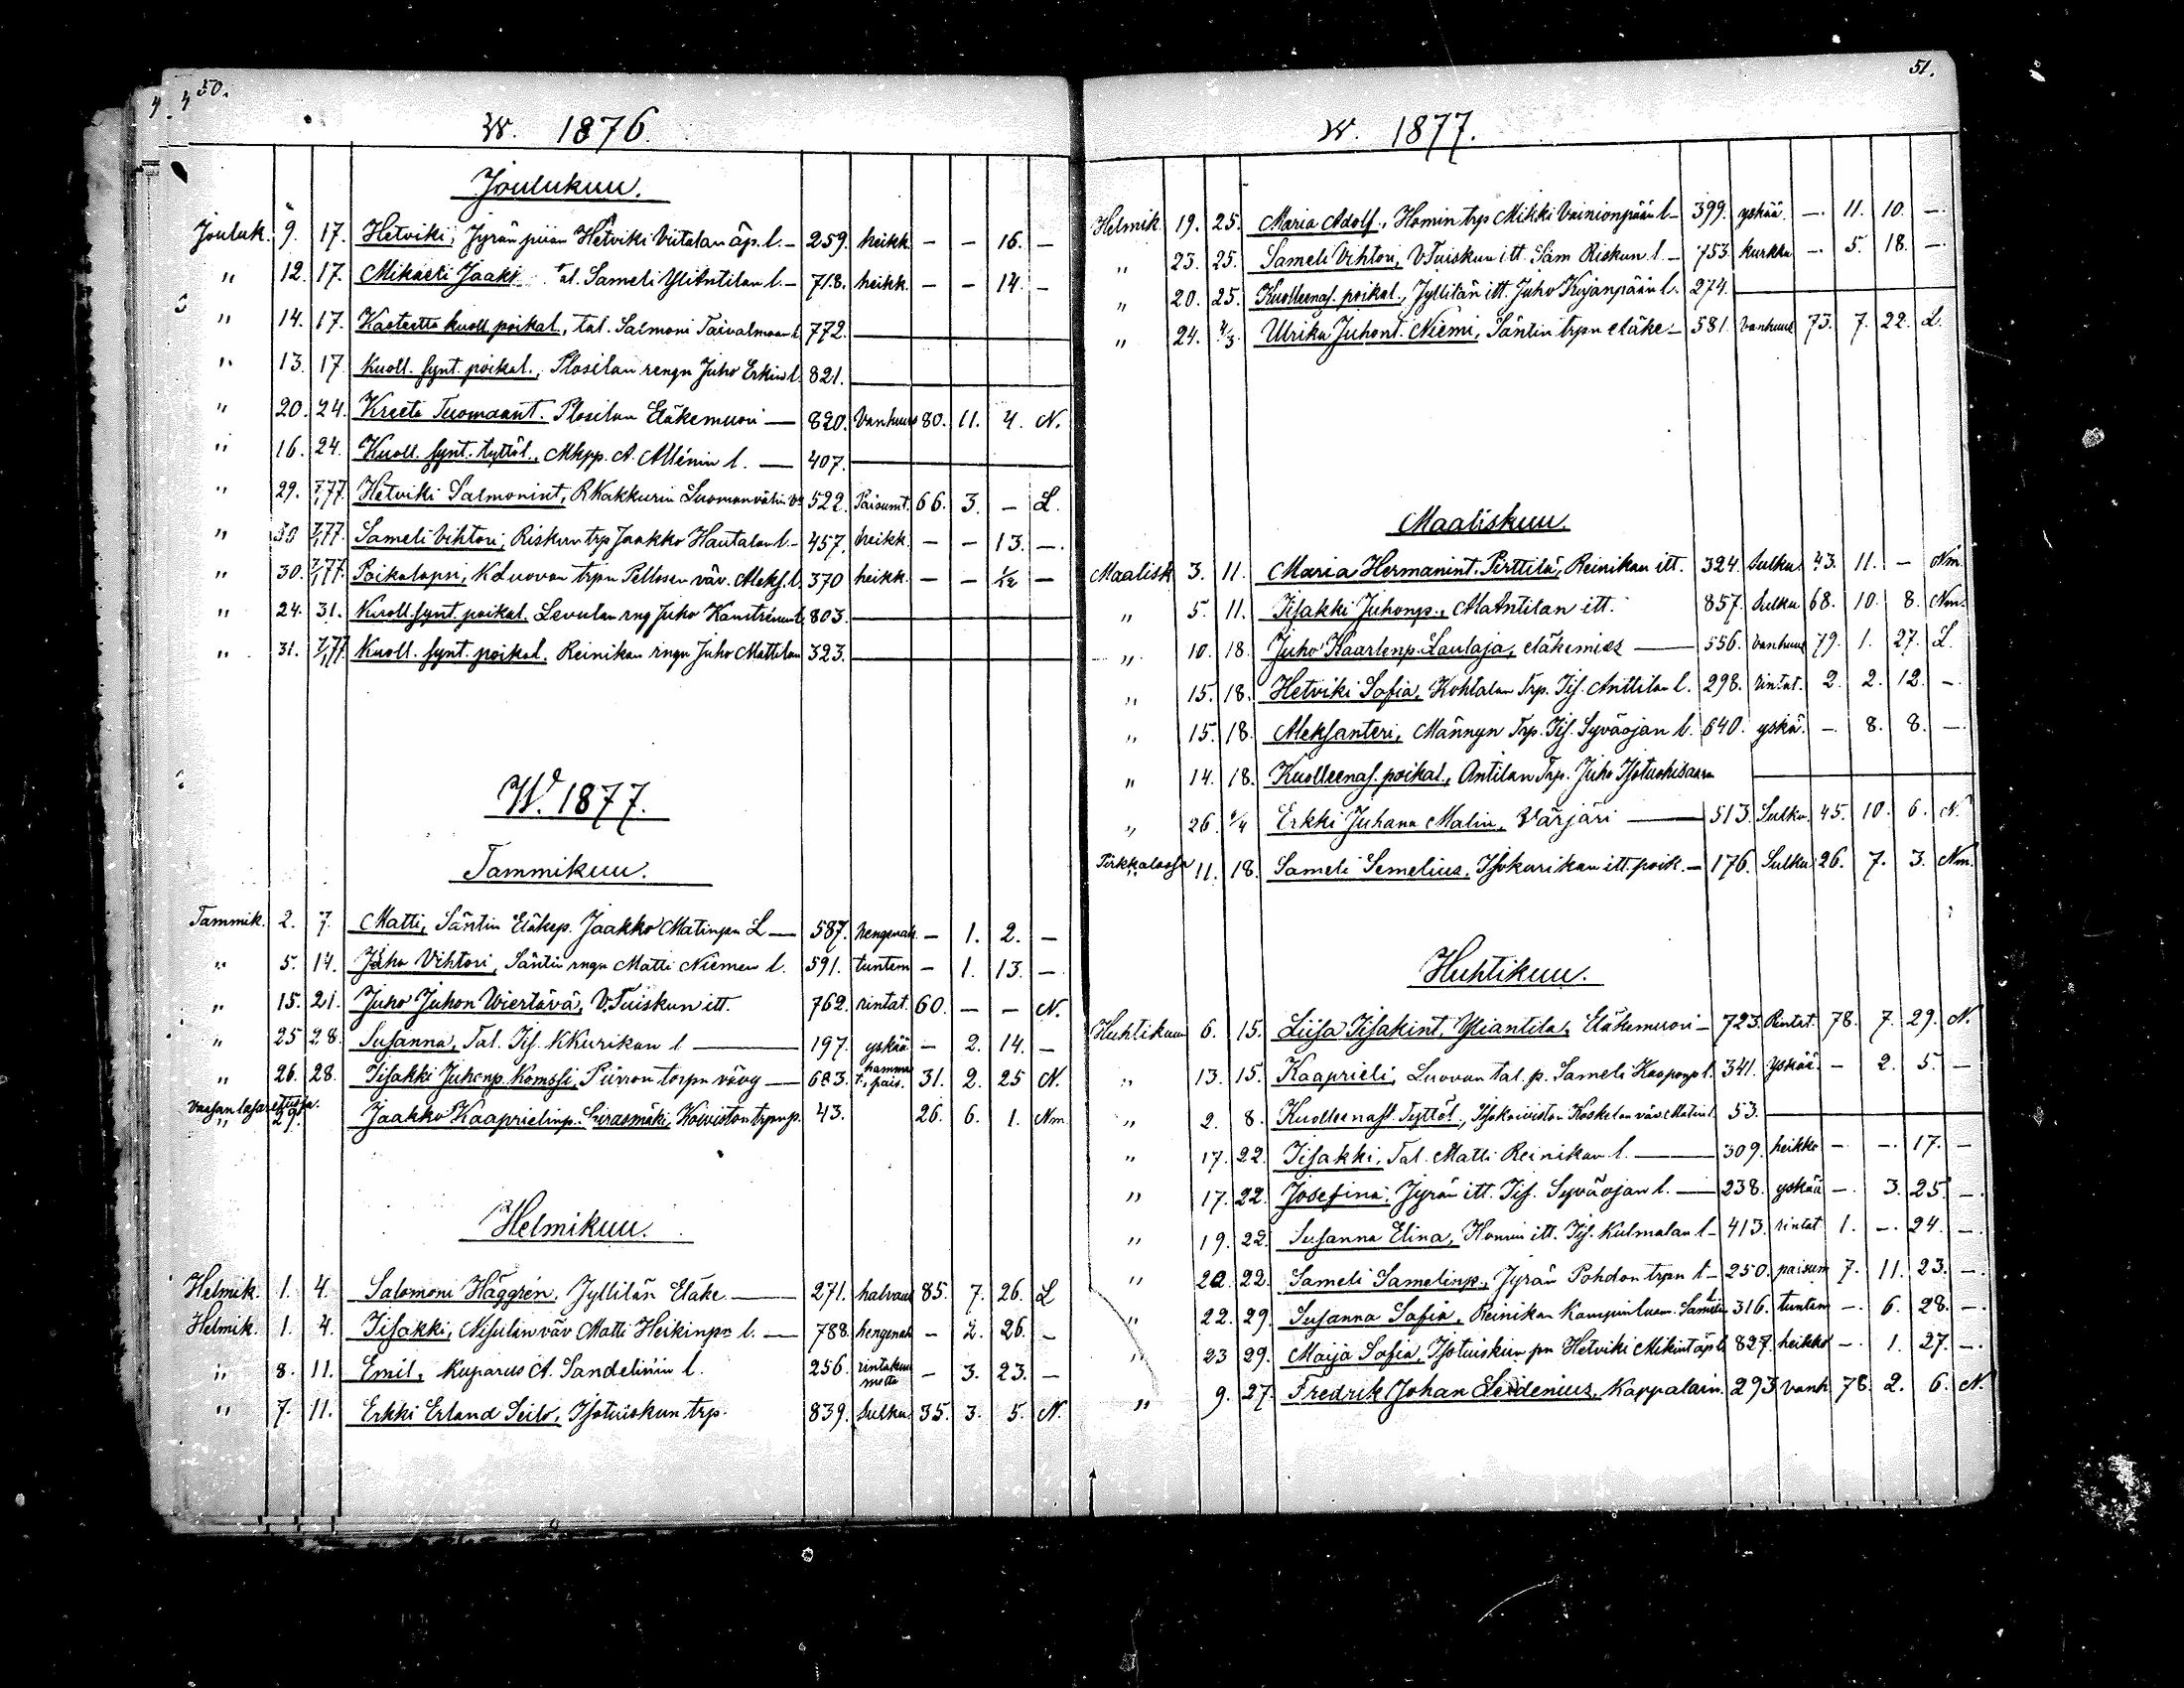 50.
W. 1876.
Joulukuu.
Jouluk. 9. 17. Hetviki, Jyrän piian Hetviki Viitalan äp. l. — 259. heikk. — — 16. —
" 12. 17. Mikaeli Jaaki tal. Sameli Yliantilan l. — 718. heikk. — — 14. —
" 14. 17. Kastettu kuoll. poikal., tal. Salmoni Taivalmaan l. 772.
" 13. 17. Kuoll. synt. poikal., Plosilan rengn Juho Erkin l. 821.
" 20. 24. Kreeta Tuomaant. Plosilan Eläkemuori — 820. Vanhuus 80. 11. 4. N.
" 16. 24. Kuoll. synt. tyttöl., Mkpp. A. Allénin l. — 407.
" 29. 7/1 77. Hetviki Salmonint, RKakkurin Luomanvälin 522. Paisumt. 66. 3. — L.
" 30 7/1 77. Sameli Vihtori, Riskun trp Jaakko Hautalan l. — 457. heikk. — — 13. —.
" 30. 7/1 77. Poikalapsi, KLuovan trpn Peltosen väv. Aleks. l. 370 heikk. — — 1/12 —
" 24. 31. Kuoll. synt. poikal. Levulan rng Juho l. 803.
" 31. 7/1 77. Kuoll. synt. poikal. Reinikan rngn Juho Mattilan 323.
W. 1877.
Tammikuu.
Tammik. 2. 7. Matti, Säntin Eläkep. Jaakko Matinpn L — 587. hengenah. — 1. 2. —
" 5. 14. Juho Vihtori, Säntin rngn Matti Niemen l. 591. tuntem — 1. 13. —
" 15. 21. Juho Juhon Wiertävä, V.Tuiskun itt. 762. rintat. 60. — — N.
" 25 28. Susanna, Tal. Iis. KKurikan l — 197. yskää — 2. 14. —
" 26. 28. Iisakki Juhonp. Komssi, Piirron torpn vävy — 683. hamma t., pais. 31. 2. 25 N.
Vaasan lasaretissa. " 29. Jaakko Kaaprielinp. Sirasmäki, Koiviston trpn p. 43. 26. 6. 1. Nm.
Helmikuu.
Helmik. 1. 4. Salomoni Häggrén, Jyllilän Eläke — 271. halvaus 85. 7. 26. L
Helmik. 1. 4. Iisakki, Nisulan väv Matti Heikinpn l. — 788. hengenah — 2. 26. —
" 8. 11. Emil, Kuparus A. Sandelinin l. 256. rintakuu metta — 3. 23. —
" 7. 11. Erkki Erland Seilo, Isotuiskun trp. 839. Sulku 35. 3. 5. N.
51.
W. 1877.
Helmik. 19. 25. Maria Adolf., Homin trp Mikki Vainionpään l — 399. yskää. —. 11. 10. —
" 23. 25. Sameli Vihtori, VTuiskun itt. Sam Riskun l. — 753. kurkku —. 5. 18. —
" 20. 25. Kuolleenas. poikal., Jyllilän itt. Juho Kujanpään l. 274.
" 24. 4/3. Ulrika Juhont. Niemi, Säntin trpn eläke — 581. Vanhuus 73. 7. 22. L.
Maaliskuu.
Maalisk 3. 11. Maria Hermanint. Pirttilä, Reinikan itt. 324. Sulku 43. 11. — Nm.
" 5. 11. Iisakki Juhonp., AlaAntilan itt. 857. Sulku 68. 10. 8. Nm.
" 10. 18. Juho Kaarlenp. Laulaja, eläkemies — 556. Vanhuus 79. 1. 27. L.
" 15. 18. Hetviki Sofia, Kohtalan Trp. Iis. Anttilan l. 298. rintat. 2. 2. 12. —
" 15. 18. Aleksanteri, Männyn Trp. Iis. Syväojan l. 640. yskä. —. 8. 8. —
" 14. 18. Kuolleenas. poikal., Antilan Trp. Juho Isotuohisaara
" 26. 2/4 Erkki Juhana Malin, Värjäri — 513. Sulku 45. 10. 6. N.
Pirkkalassa " 11. 18. Sameli Semelius, Isokurikan itt. poik. — 176. Sulku 26. 7. 3. Nm.
Huhtikuu.
Huhtikuu 6. 15. Liisa Iisakint. Yliantila, Eläkemuori — 723. Rintat. 78. 7. 29. N.
" 13. 15. Kaaprieli, Luovan tal. p. Sameli Kaaponp l. 341. Yskää. — 2. 5. —
" 2. 8. Kuolleenast Tyttöl., Isokoiviston Koskelan väv. Matin l. 53.
" 17. 22. Iisakki, Tal. Matti Reinikan l. — 309. heikko —. —. 17. —
" 17. 22. Josefina, Jyrän itt. Iis. Syväojan l. — 238. yskää —. 3. 25. —.
" 19. 22. Susanna Elina, Homin itt. Iis. Kulmalan l — 413. rintat 1. —. 24. —
" 22. 22. Sameli Samelinp., Jyrän Pohdon trpn l — 250. paisum 7. 11. 23. —.
" 22. 29. Susanna Sofia, Reinikan Kampinluom. Samelin l 316. tuntem —. 6. 28. —.
" 23 29. Maija Sofia, Isotuiskun pn Hetviki Mikint äp l 827. heikko —. 1. 27. —.
" 9. 27. Fredrik Johan Leidenius, Kappalain. 293 vanh 78. 2. 6. N.